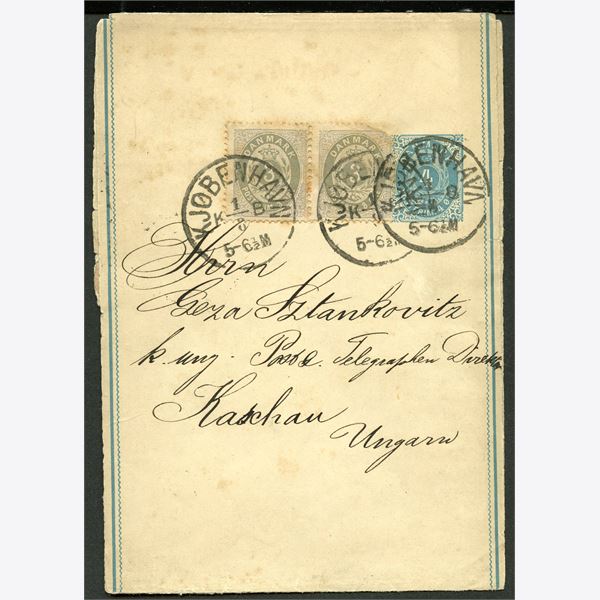 DANMARK DANMARK
3 3 4
KJØBENHAVN KJØB KJØBENHAVN
1 1
K B K B
5-6½M 5-6½ 5-6½M
Herrn
Geza Sztankovitz
k. ung. Post & Telegraphen Direktor
Kaschau
Ungarn